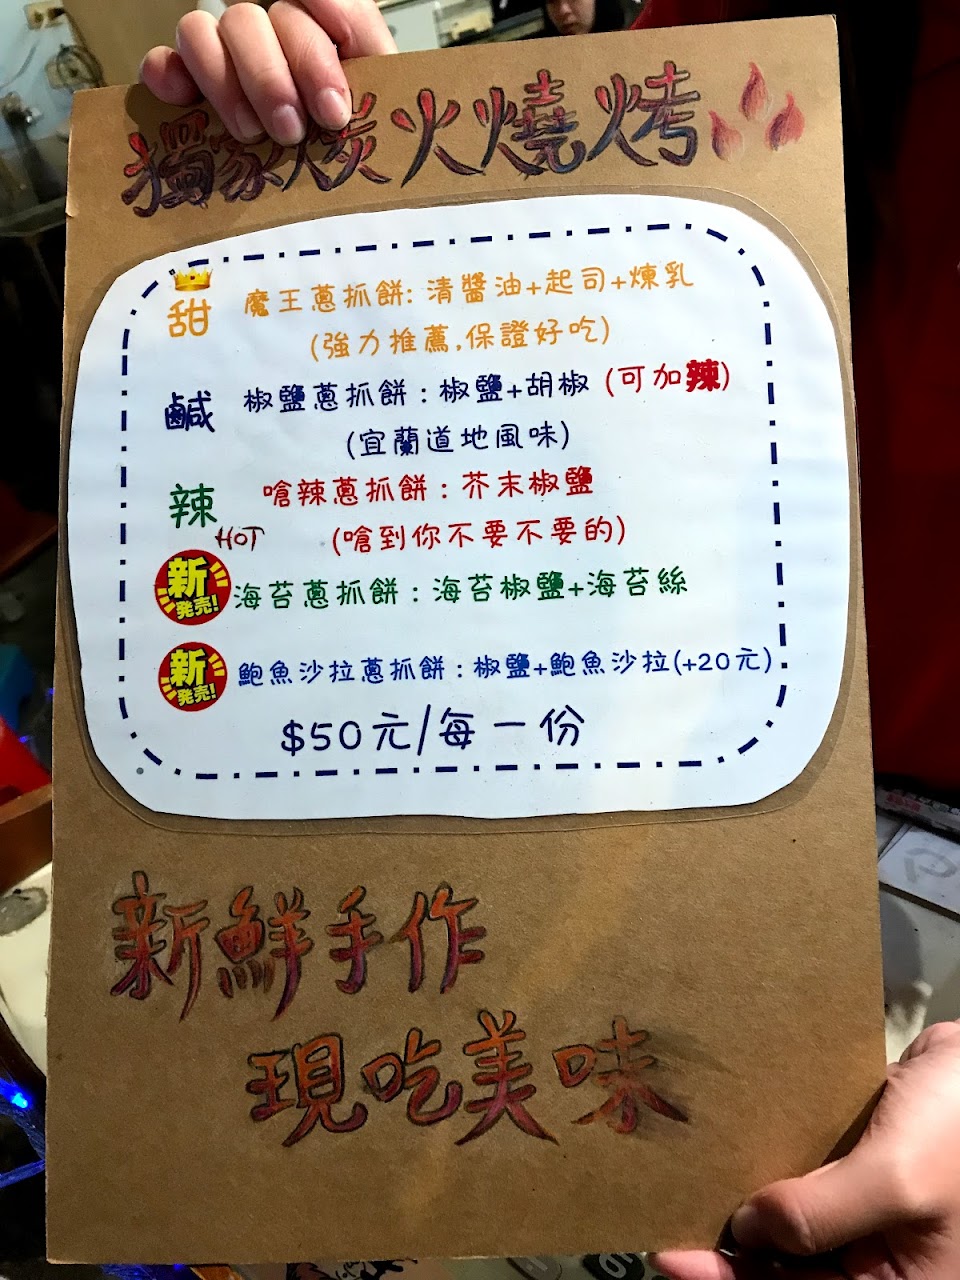 獨家炭火燒烤
甜 魔王蔥抓餅:清醬油+起司+煉乳
(強力推薦,保證好吃)
鹹 椒鹽蔥抓餅:椒鹽+胡椒(可加辣)
(宜蘭道地風味)
辣 嗆辣蔥抓餅:芥末椒鹽
HOT (嗆到你不要不要的)
新発売! 海苔蔥抓餅:海苔椒鹽+海苔絲
新発売! 鮑魚沙拉蔥抓餅:椒鹽+鮑魚沙拉(+20元)
$50元/每一份
新鮮手作
現吃美味